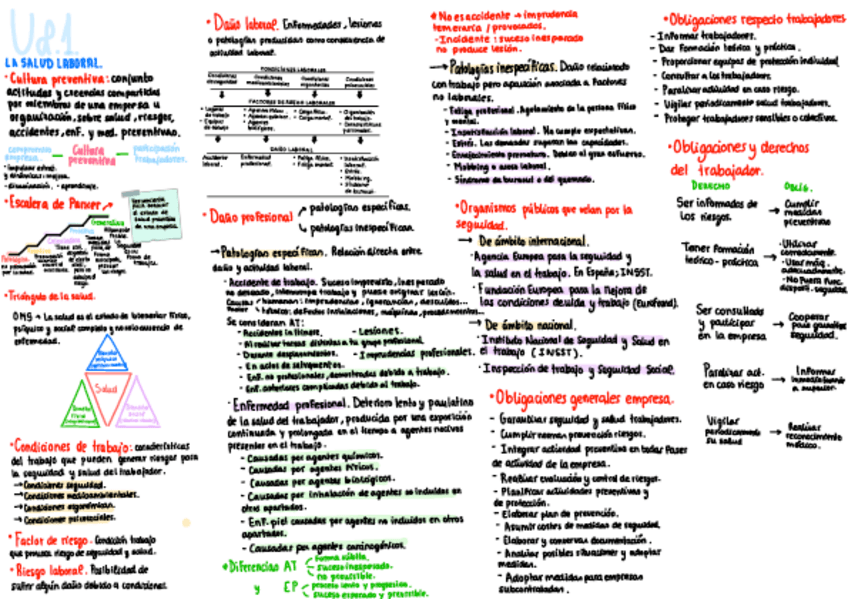 Ud.1.
LA SALUD LABORAL.
• Cultura preventiva: conjunto
actitudes y creencias compartidas
por miembros de una empresa u
organización, sobre salud, riesgos,
accidentes, enf. y med. preventivas.
compromiso empresa. — Cultura preventiva — participación trabajadores.
• Escalera de Parker →
• Triángulo de la salud.
OMS → La salud es el estado de bienestar físico,
psíquico y social completo y no solo ausencia de
enfermedad.
Salud
• Condiciones de trabajo: características
del trabajo que pueden generar riesgos para
la seguridad y salud del trabajador.
→ Condiciones seguridad.
→ Condiciones medioambientales.
→ Condiciones ergonómicas.
→ Condiciones psicosociales.
• Factor de riesgo. Condición trabajo
que provoca riesgo de seguridad y salud.
• Riesgo laboral. Posibilidad de
sufrir algún daño debido a condiciones.
• Daño laboral. Enfermedades, lesiones
o patologías producidas como consecuencia de
actividad laboral.
CONDICIONES LABORALES
FACTORES DE RIESGO LABORALES
DAÑO LABORAL
• Daño profesional
patologías específicas.
patologías inespecíficas.
→ Patologías específicas. Relación directa entre
daño y actividad laboral.
· Accidente de trabajo. Suceso imprevisto, inesperado
no deseado, interrumpe trabajo y puede originar lesión.
Se consideran AT:
- Accidentes in itinere.
- Lesiones.
- Al realizar tareas distintas a tu grupo profesional.
- Durante desplazamientos.
- Imprudencias profesionales.
- En actos de salvamentos.
- Enf. no profesionales, demostradas debido a trabajo.
- Enf. anteriores complicadas debido al trabajo.
· Enfermedad profesional. Deterioro lento y paulatino
de la salud del trabajador, producida por una exposición
continuada y prolongada en el tiempo a agentes nocivos
presentes en el trabajo.
- Causadas por agentes químicos.
- Causadas por agentes físicos.
- Causadas por agentes biológicos.
- Causadas por inhalación de agentes no incluidos en
otros apartados.
- Enf. piel causadas por agentes no incluidos en otros
apartados.
- Causadas por agentes carcinogénicos.
• Diferencias AT
forma súbita.
suceso inesperado.
no previsible.
y EP
proceso lento y progresivo.
suceso esperado y previsible.
* No es accidente → imprudencia
temeraria / provocados.
- Incidente: suceso inesperado
no produce lesión.
→ Patologías inespecíficas. Daño relacionado
con trabajo pero aparición asociada a factores
no laborales.
- Fatiga profesional. Agotamiento de la persona físico
y mental.
- Insatisfacción laboral. No cumple expectativas.
- Estrés. Las demandas superan las capacidades.
- Envejecimiento prematuro. Debido al gran esfuerzo.
- Mobbing o acoso laboral.
- Síndrome de burnout o del quemado.
• Organismos públicos que velan por la
seguridad.
→ De ámbito internacional.
· Agencia Europea para la seguridad y
la salud en el trabajo. En España; INSST.
· Fundación Europea para la Mejora de
las condiciones de vida y trabajo (Eurofound).
→ De ámbito nacional.
· Instituto Nacional de Seguridad y Salud en
el trabajo (INSST).
· Inspección de trabajo y Seguridad Social.
• Obligaciones generales empresa.
- Garantizar seguridad y salud trabajadores.
- Cumplir normas prevención riesgos.
- Integrar actividad preventiva en todas fases
de actividad de la empresa.
- Realizar evaluación y control de riesgos.
- Planificar actividades preventivas y
de protección.
- Elaborar plan de prevención.
- Asumir costes de medidas de seguridad.
- Elaborar y conservar documentación.
- Analizar posibles situaciones y adoptar
medidas.
- Adoptar medidas para empresas
subcontratadas.
• Obligaciones respecto trabajadores
- Informar trabajadores.
- Dar formación teórica y práctica.
- Proporcionar equipos de protección individual.
- Consultar a los trabajadores.
- Paralizar actividad en caso riesgo.
- Vigilar periódicamente salud trabajadores.
- Proteger trabajadores sensibles o colectivos.
• Obligaciones y derechos
del trabajador.
DERECHO OBLIG.
Ser informados de los riesgos. → Cumplir medidas preventivas
Tener formación teórico-práctica →
Ser consultados y participar en la empresa → Cooperar para garantizar seguridad.
Paralizar act. en caso riesgo → Informar inmediatamente a superior.
Vigilar periódicamente su salud → Realizar reconocimiento médico.